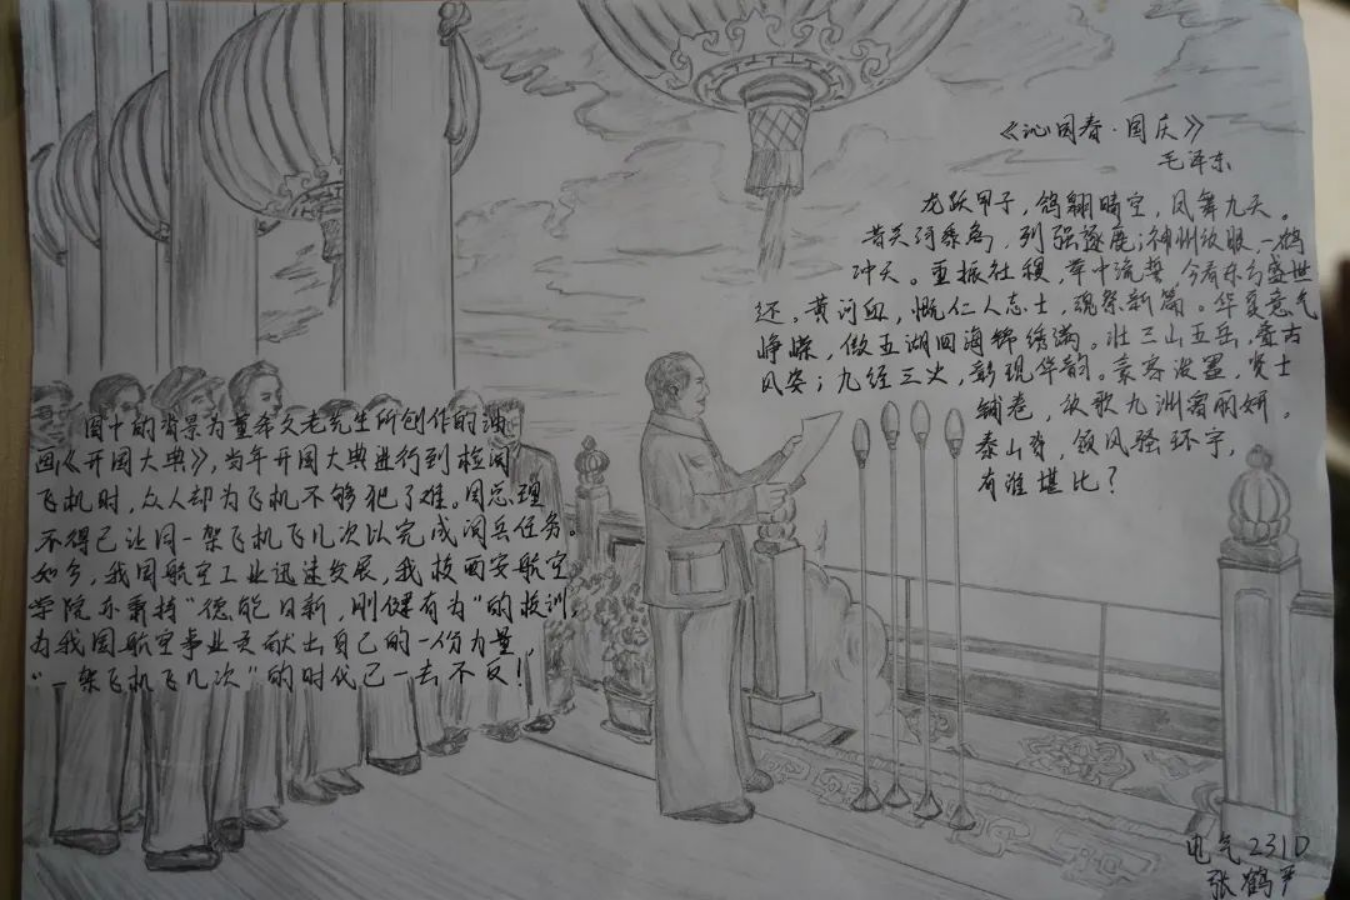 《沁园春·国庆》
毛泽东
龙跃甲子，鸽翱晴空，凤舞九天。
昔关河黍离，列强逐鹿；神州放眼，一鹤
冲天。重振社稷，举中流誓，今看东方盛世
还。黄河血，慨仁人志士，魂祭新篇。华夏意气
峥嵘，傲五湖四海锦绣满。壮三山五岳，叠古
风姿；九经三史，彰现华韵。豪客泼墨，贤士
铺卷，放歌九洲看丽妍。
泰山脊，领风骚环宇，
有谁堪比？
图中的背景为董希文老先生所创作的油
画《开国大典》，当年开国大典进行到检阅
飞机时，众人却为飞机不够犯了难。周总理
不得已让同一架飞机飞几次以完成阅兵任务。
如今，我国航空工业迅速发展，我校西安航空
学院亦秉持“德能日新，刚健有为”的校训，
为我国航空事业贡献出自己的一份力量，
“一架飞机飞几次”的时代已一去不反！
电气231D
张鹤